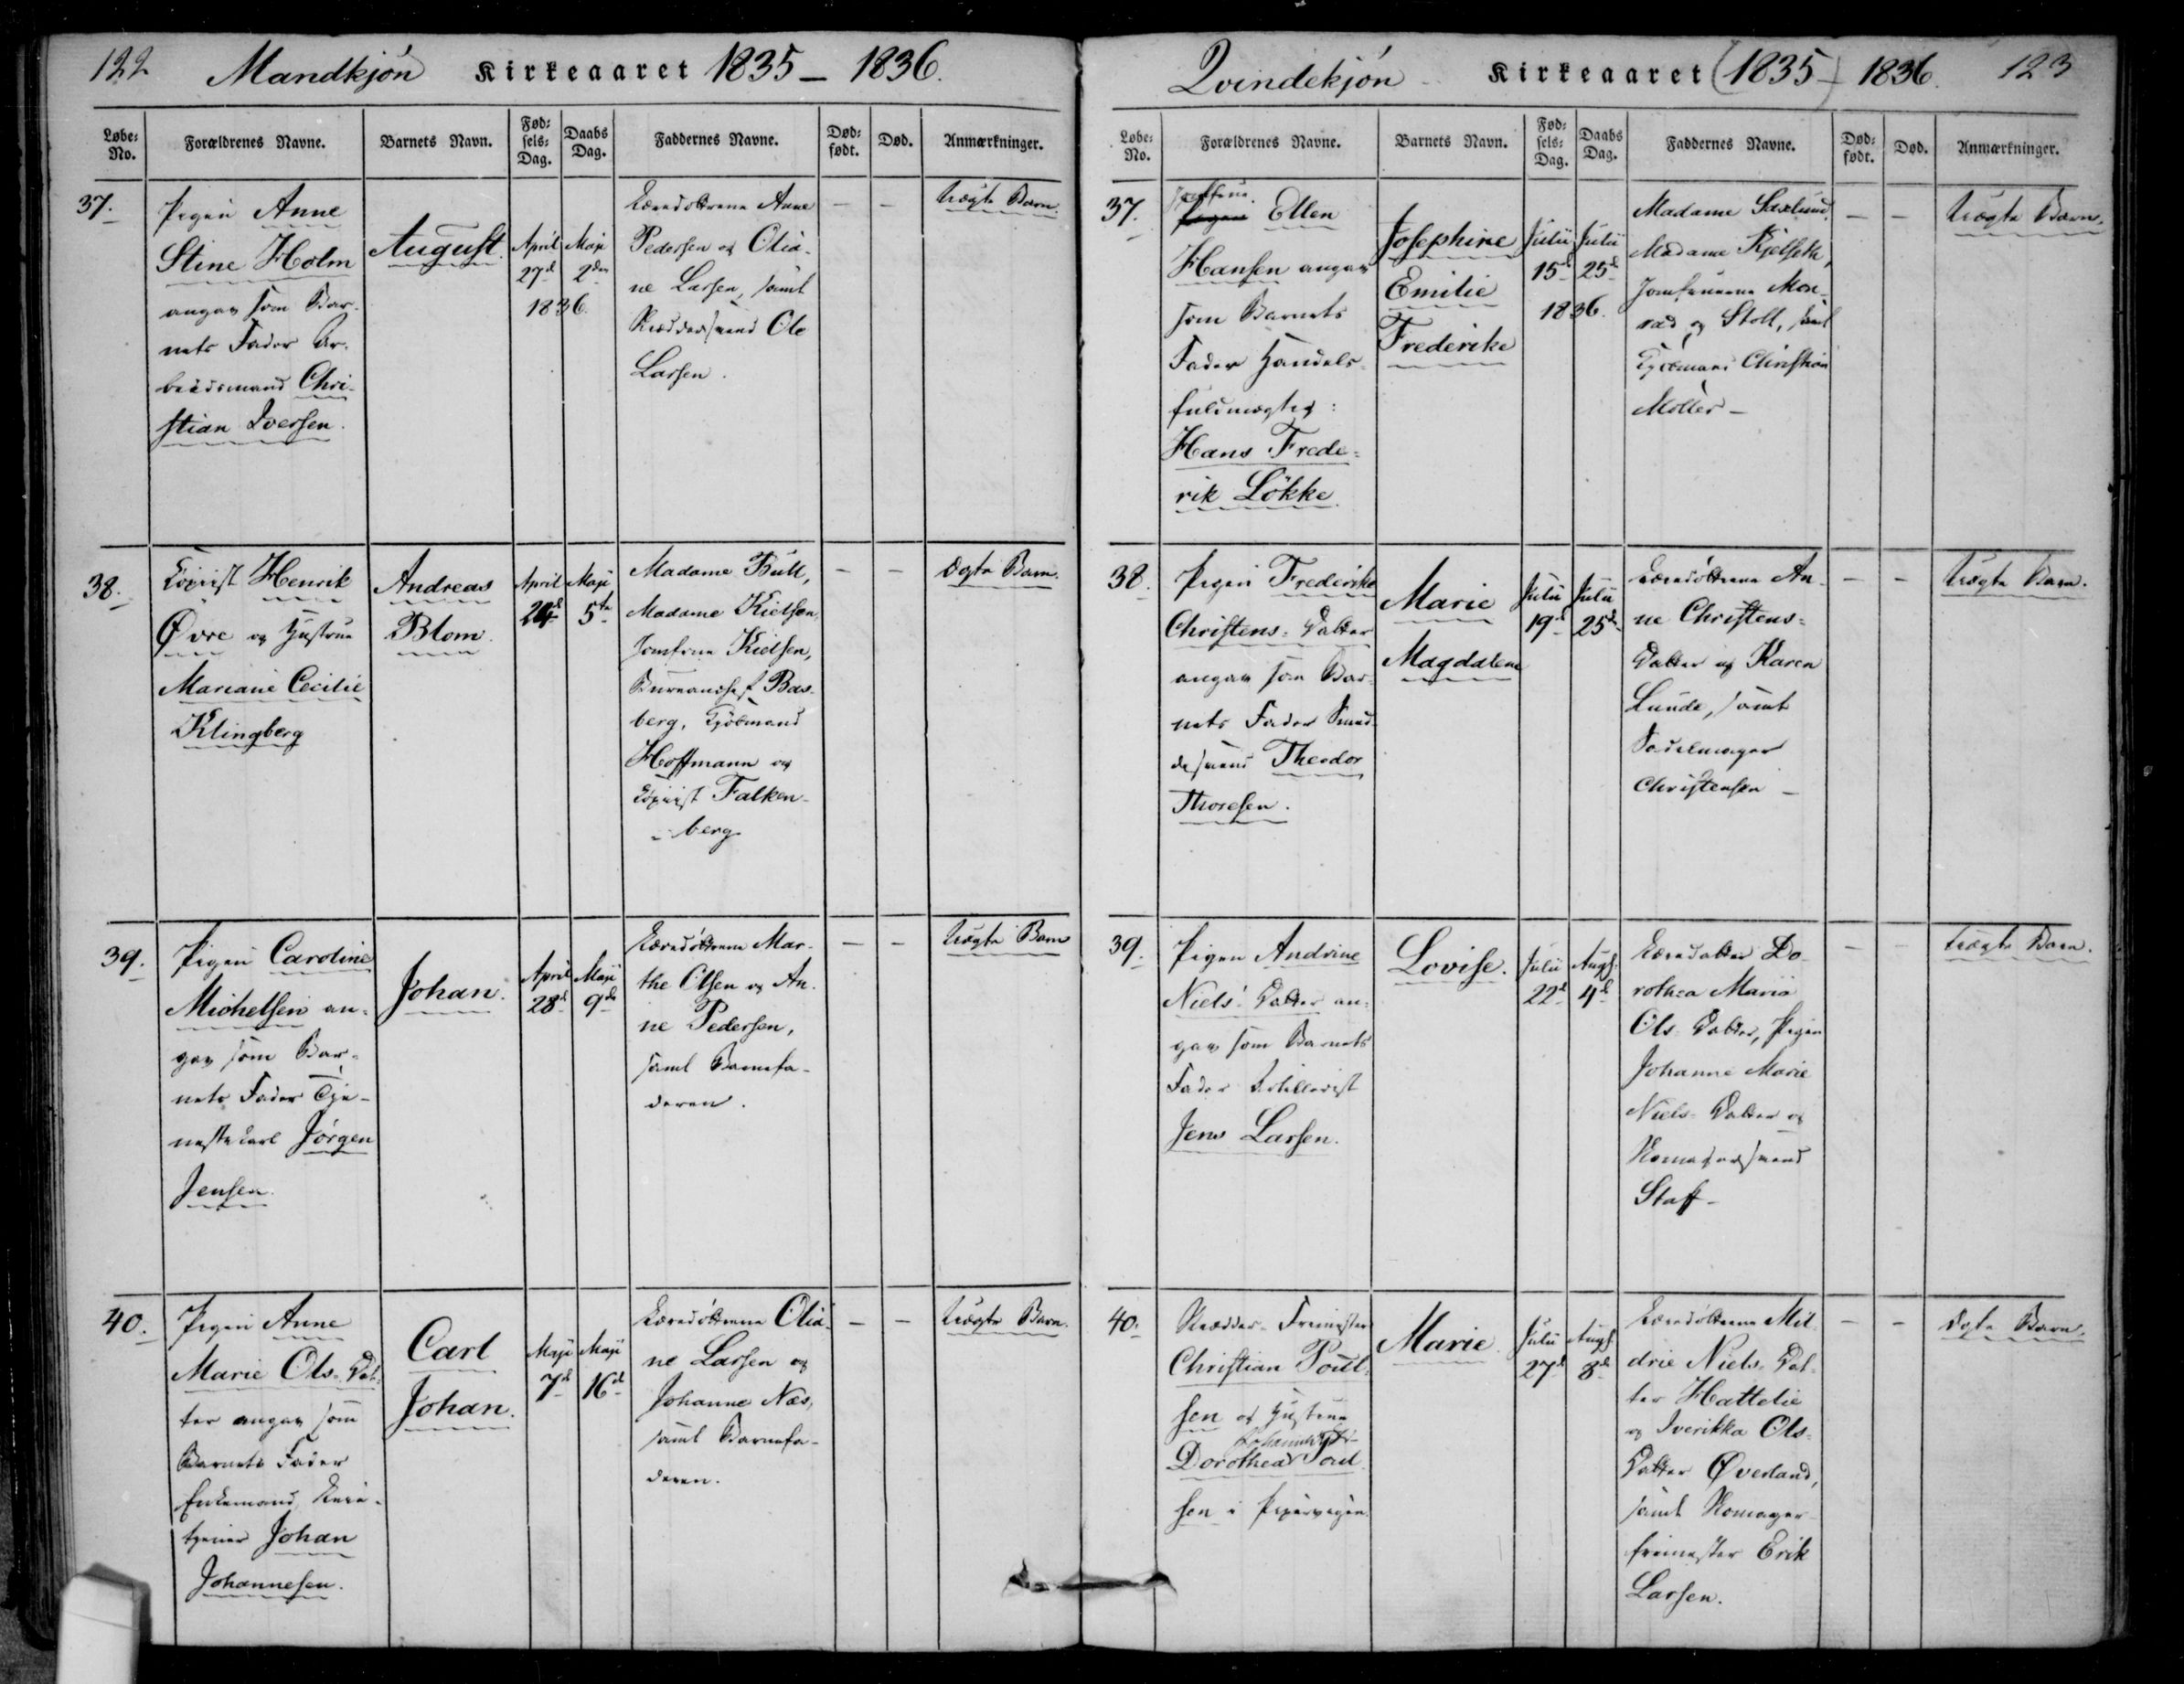 122 Mandkjøn Kirkeaaret 1835 - 1836.
Løbe: No. Forældrenes Navne. Barnets Navn. Fød: sels: Dag. Daabs Dag. Faddernes Navne. Død: født. Død. Anmærkninger.
37.
Pigen Anne
Stine Holm
angav som Bar-
nets Fader Ar-
beidsmand Chri-
stian Iversen.
August.
April
27d
Maji
2den
1836.
Anne
Pedersen og Olia-
ne Larsen, samt
Ole
Larsen.
— —
Uægte Barn.
38.
Copiist Henrik
Øvre og Hustrue
Mariane Cecilie
Klingberg
Andreas
Blom.
April
24d
Maji
5te
Madame Bull,
Madame Kielsen,
Jomfrue Kielsen,
Bureauchef Bas-
berg, Kjøbmand
Hoffmann og
Copiist Falken-
berg
— —
Ægte Barn.
39.
Pigen Caroline
Michelsen an-
gav som Bar-
nets Fader Tje-
nestekarl Jørgen
Jensen.
Johan.
April
28d
Maji
9de
Mar-
the Olsen og An-
ne Pedersen,
samt Barnefa-
deren.
— —
Uægte Barn
40.
Pigen Anne
Marie Ols-Dat-
ter angav som
Barnets Fader
Enkemand,
Johan
Johannesen.
Carl
Johan.
Maji
7d
Maji
16d
Olia-
ne Larsen og
Johanne Næs,
samt Barnefa-
deren.
— —
Uægte Barn.
Qvindekjøn Kirkeaaret (1835-) 1836. 123
Løbe: No. Forældrenes Navne. Barnets Navn. Fød: sels: Dag. Daabs Dag. Faddernes Navne. Død: født. Død. Anmærkninger.
37.
Jomfrue
Pigen Ellen
Hansen angav
som Barnets
Fader Handels-
fuldmægtig:
Hans Frede-
rik Løkke.
Josephine
Emilie
Frederike
Julii
15d
Julii
25d
1836.
Madame Saxlund
Madame Kjelseth,
Jomfruerne Mon-
rad og Stoll, samt
Kjøbmand Christian
Møller -
— —
Uægte Barn.
38.
Pigen Frederike
Christens-Datter
angav som Bar-
nets Fader Smed-
desvend Theodor
Thoresen.
Marie
Magdalene
Julii
19d
Julii
25d
An-
ne Christens-
Datter og Karen
Lunde, samt
Sadelmager
Christensen -
— —
Uægte Barn.
39.
Pigen Andrine
Niels-Datter an-
gav som Barnets
Fader Artillerist
Jens Larsen.
Lovise.
Julii
22d
Augs.
4d
Do-
rothea Maria
Ols-Datter, Pigen
Johanne Marie
Niels-Datter og
Skomagersvend
Staff -
— —
Uægte Barn.
40.
Skrædder-Frimester
Christian Poul-
sen og Hustrue
Dorothea Poul-
sen i Pipervigen.
Marie.
Julii
27d
Augs.
8de
Mil-
drie Niels-Dat-
ter Hattelie
og Iverikka Ols-
Datter Øverland,
samt Skomager-
frimester Erik
Larsen.
— —
Ægte Barn.